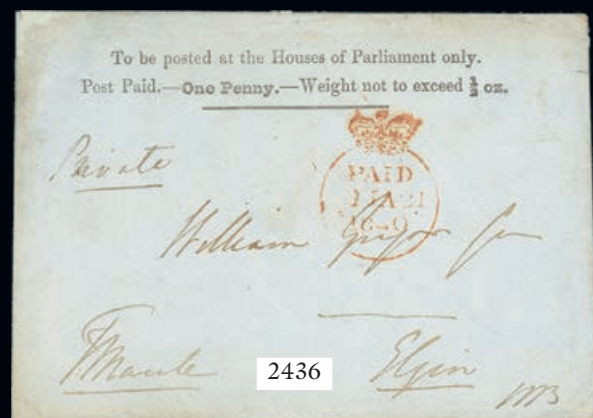 To be posted at the Houses of Parliament only.
Post Paid.—One Penny.—Weight not to exceed ½ oz.
Private
PAID
21
1840
William
F Maule
Elgin
2436